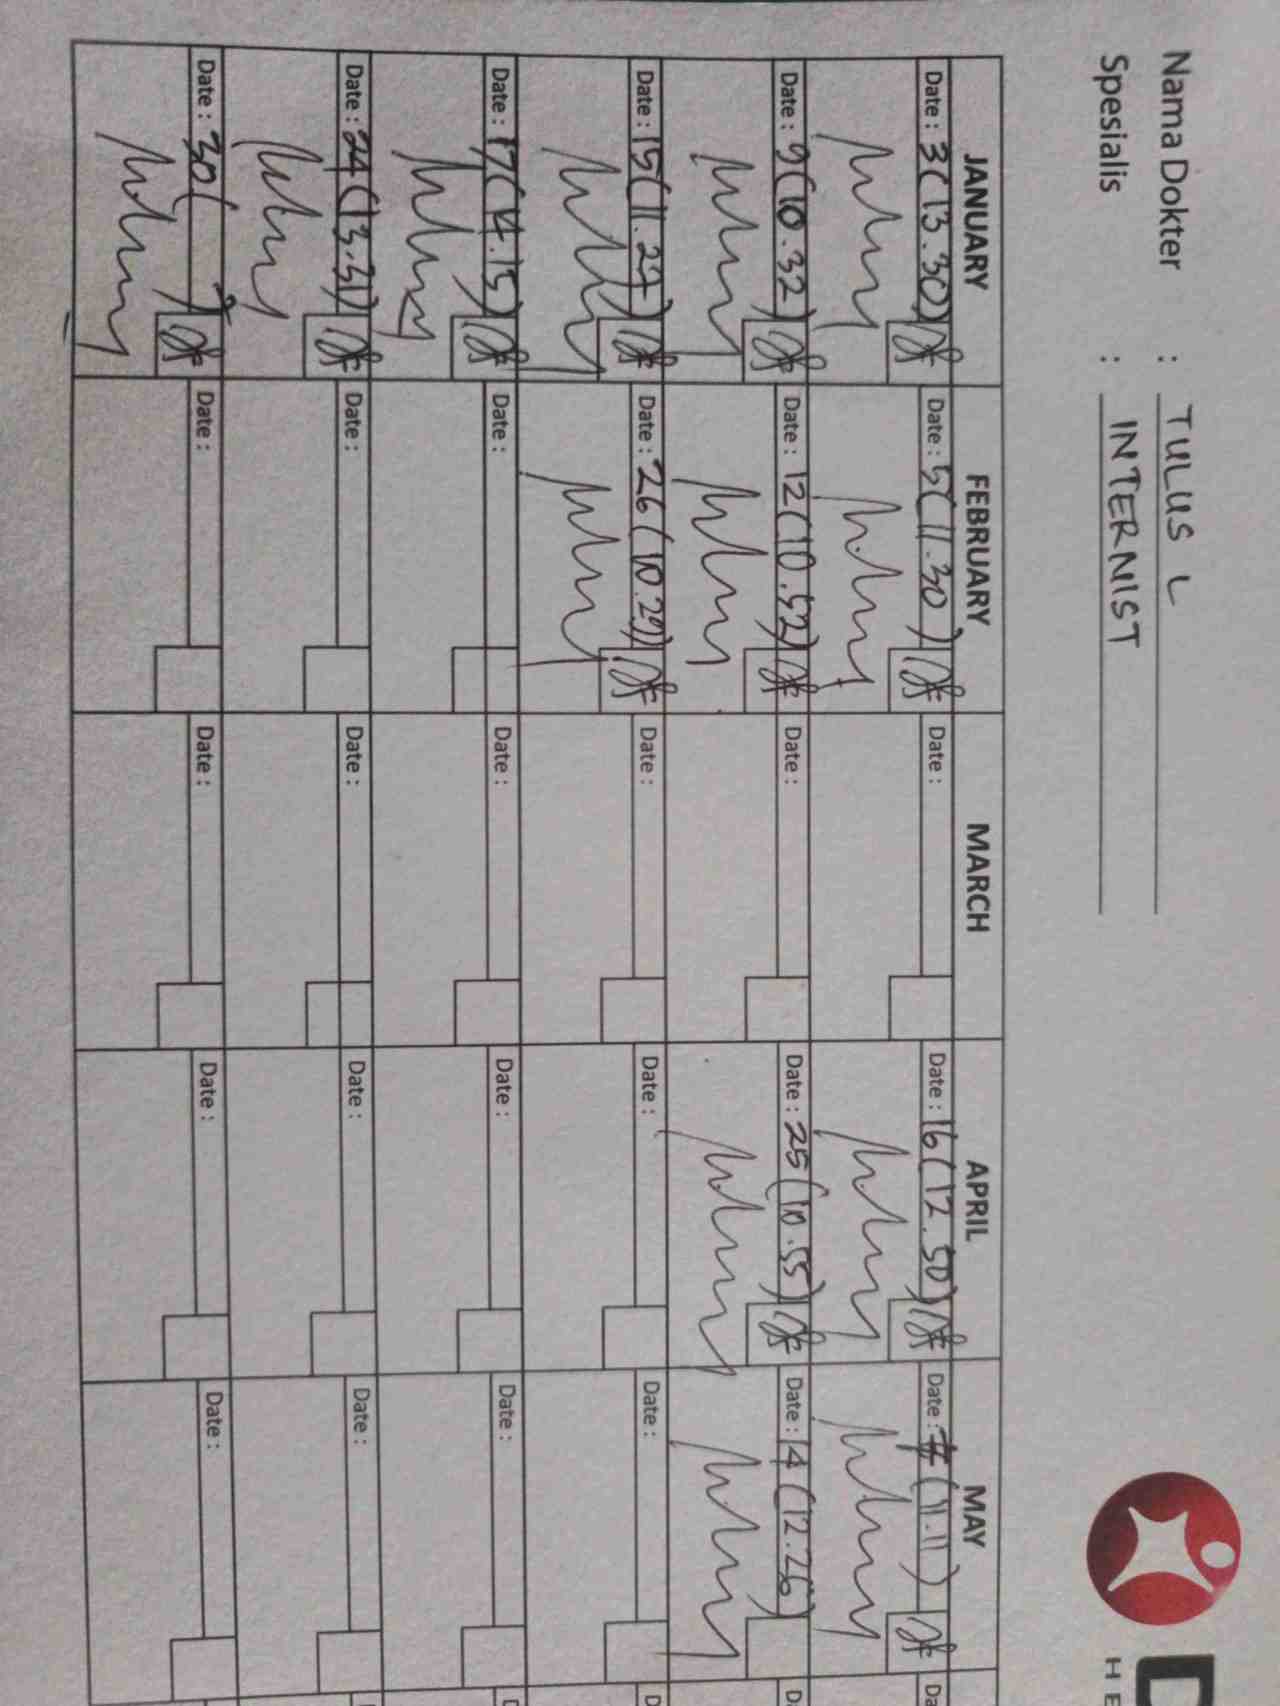 Nama Dokter : TULUS L
Spesialis : INTERNIST
HE
JANUARY FEBRUARY MARCH APRIL MAY
Date : 3 (13.30) Date : 5 (11.30) Date : Date : 16 (12.50) Date : 7 (11.11) Da
Date : 9 (10.32) Date : 12 (10.52) Date : Date : 25 (10.55) Date : 14 (12.26) D
Date : 15 (11.27) Date : 26 (10.29) Date : Date : Date : D
Date : 17 (14.15) Date : Date : Date : Date : D
Date : 24 (13.31) Date : Date : Date : Date :
Date : 30 ( ) Date : Date : Date : Date :